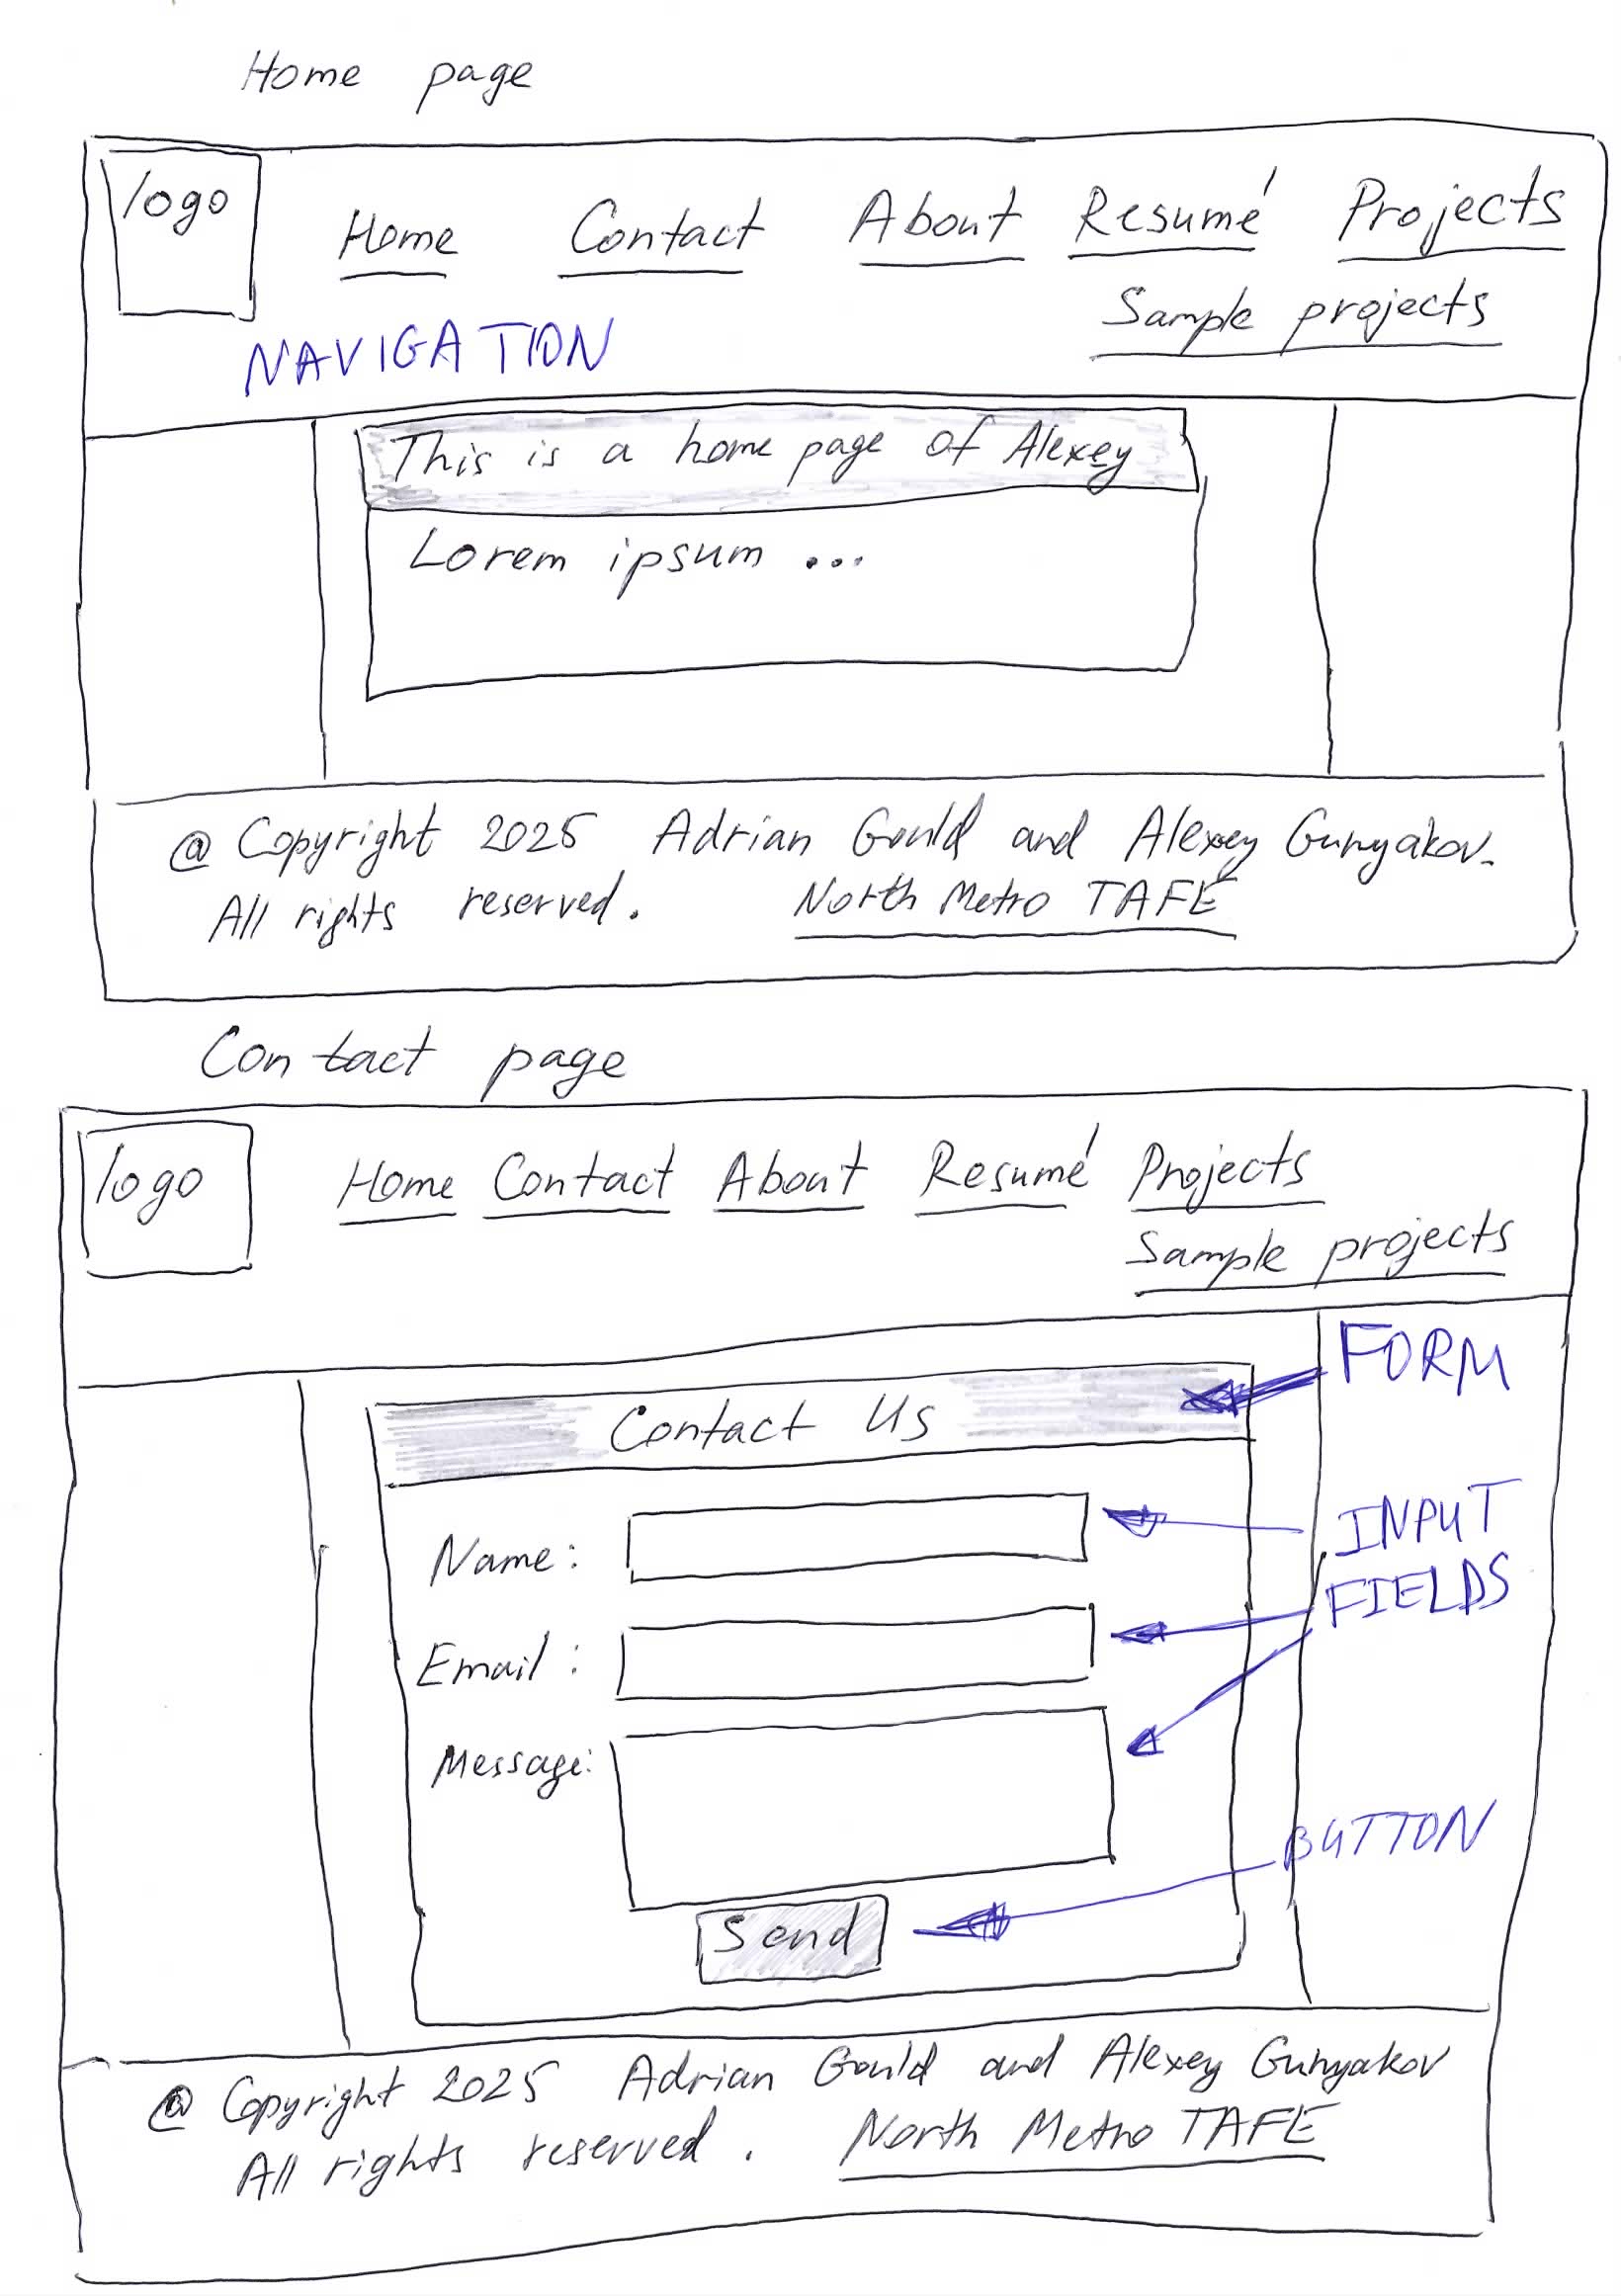 Home page
logo
Home Contact About Resumé Projects
Sample projects
NAVIGATION
This is a home page of Alexey
Lorem ipsum ...
@ Copyright 2025 Adrian Gould and Alexey Gunyakov.
All rights reserved. North Metro TAFE
Contact page
logo
Home Contact About Resumé Projects
Sample projects
FORM
Contact Us
Name:
INPUT
FIELDS
Email :
Message:
BUTTON
Send
@ Copyright 2025 Adrian Gould and Alexey Gunyakov
All rights reserved. North Metro TAFE